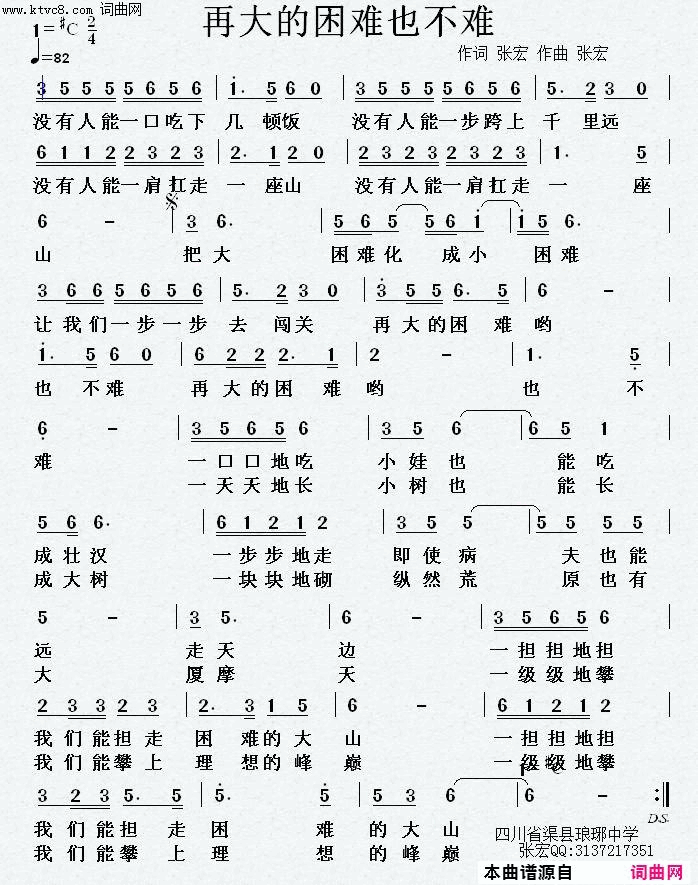 www.ktvc8.com 词曲网
再大的困难也不难
1=#C 2/4
♩=82
作词 张宏 作曲 张宏
3 5 5 5 5 6 5 6 | 1. 5 6 0 | 3 5 5 5 5 6 5 6 | 5. 2 3 0 |
没有人能一口吃下 几 顿饭 没有人能一步跨上 千 里远
6 1 1 2 2 3 2 3 | 2. 1 2 0 | 6 1 1 2 2 3 2 3 | 1. 5 |
没有人能一肩扛走 一 座山 没有人能一肩扛走 一 座
6 - | 3 6. | 5 6 5 5 6 1 | 1 5 6. |
山 把大 困难化 成小 困难
3 6 6 5 6 5 6 | 5. 2 3 0 | 3 5 5 6. 5 | 6 - |
让我们一步一步 去 闯关 再大的困 难哟
1. 5 6 0 | 6 2 2 2. 1 | 2 - | 1. 5 |
也 不难 再大的困 难哟 也 不
6 - | 3 5 6 5 6 | 3 5 6 | 6 5 1 |
难 一口口地吃 小娃也 能吃
一天天地长 小树也 能长
5 6 6. | 6 1 2 1 2 | 3 5 5 | 5 5 5 |
成壮汉 一步步地走 即使病 夫也能
成大树 一块块地砌 纵然荒 原也有
5 - | 3 5. | 6 - | 3 5 6 5 6 |
远 走天 边 一担担地担
大 厦摩 天 一级级地攀
2 3 3 2 3 | 2. 3 | 1 5 6 | 6 - | 6 1 2 1 2 |
我们能担走 困 难的大 山 一担担地担
我们能攀上 理 想的峰 巅 一级级地攀
3 2 3 5. 5 | 5. 5 | 5 5 3 6 | 6 - :||
D.S.
我们能担走困 难 的大山
我们能攀上理 想 的峰巅
四川省渠县琅琊中学
张宏QQ:3137217351
本曲谱源自 词曲网